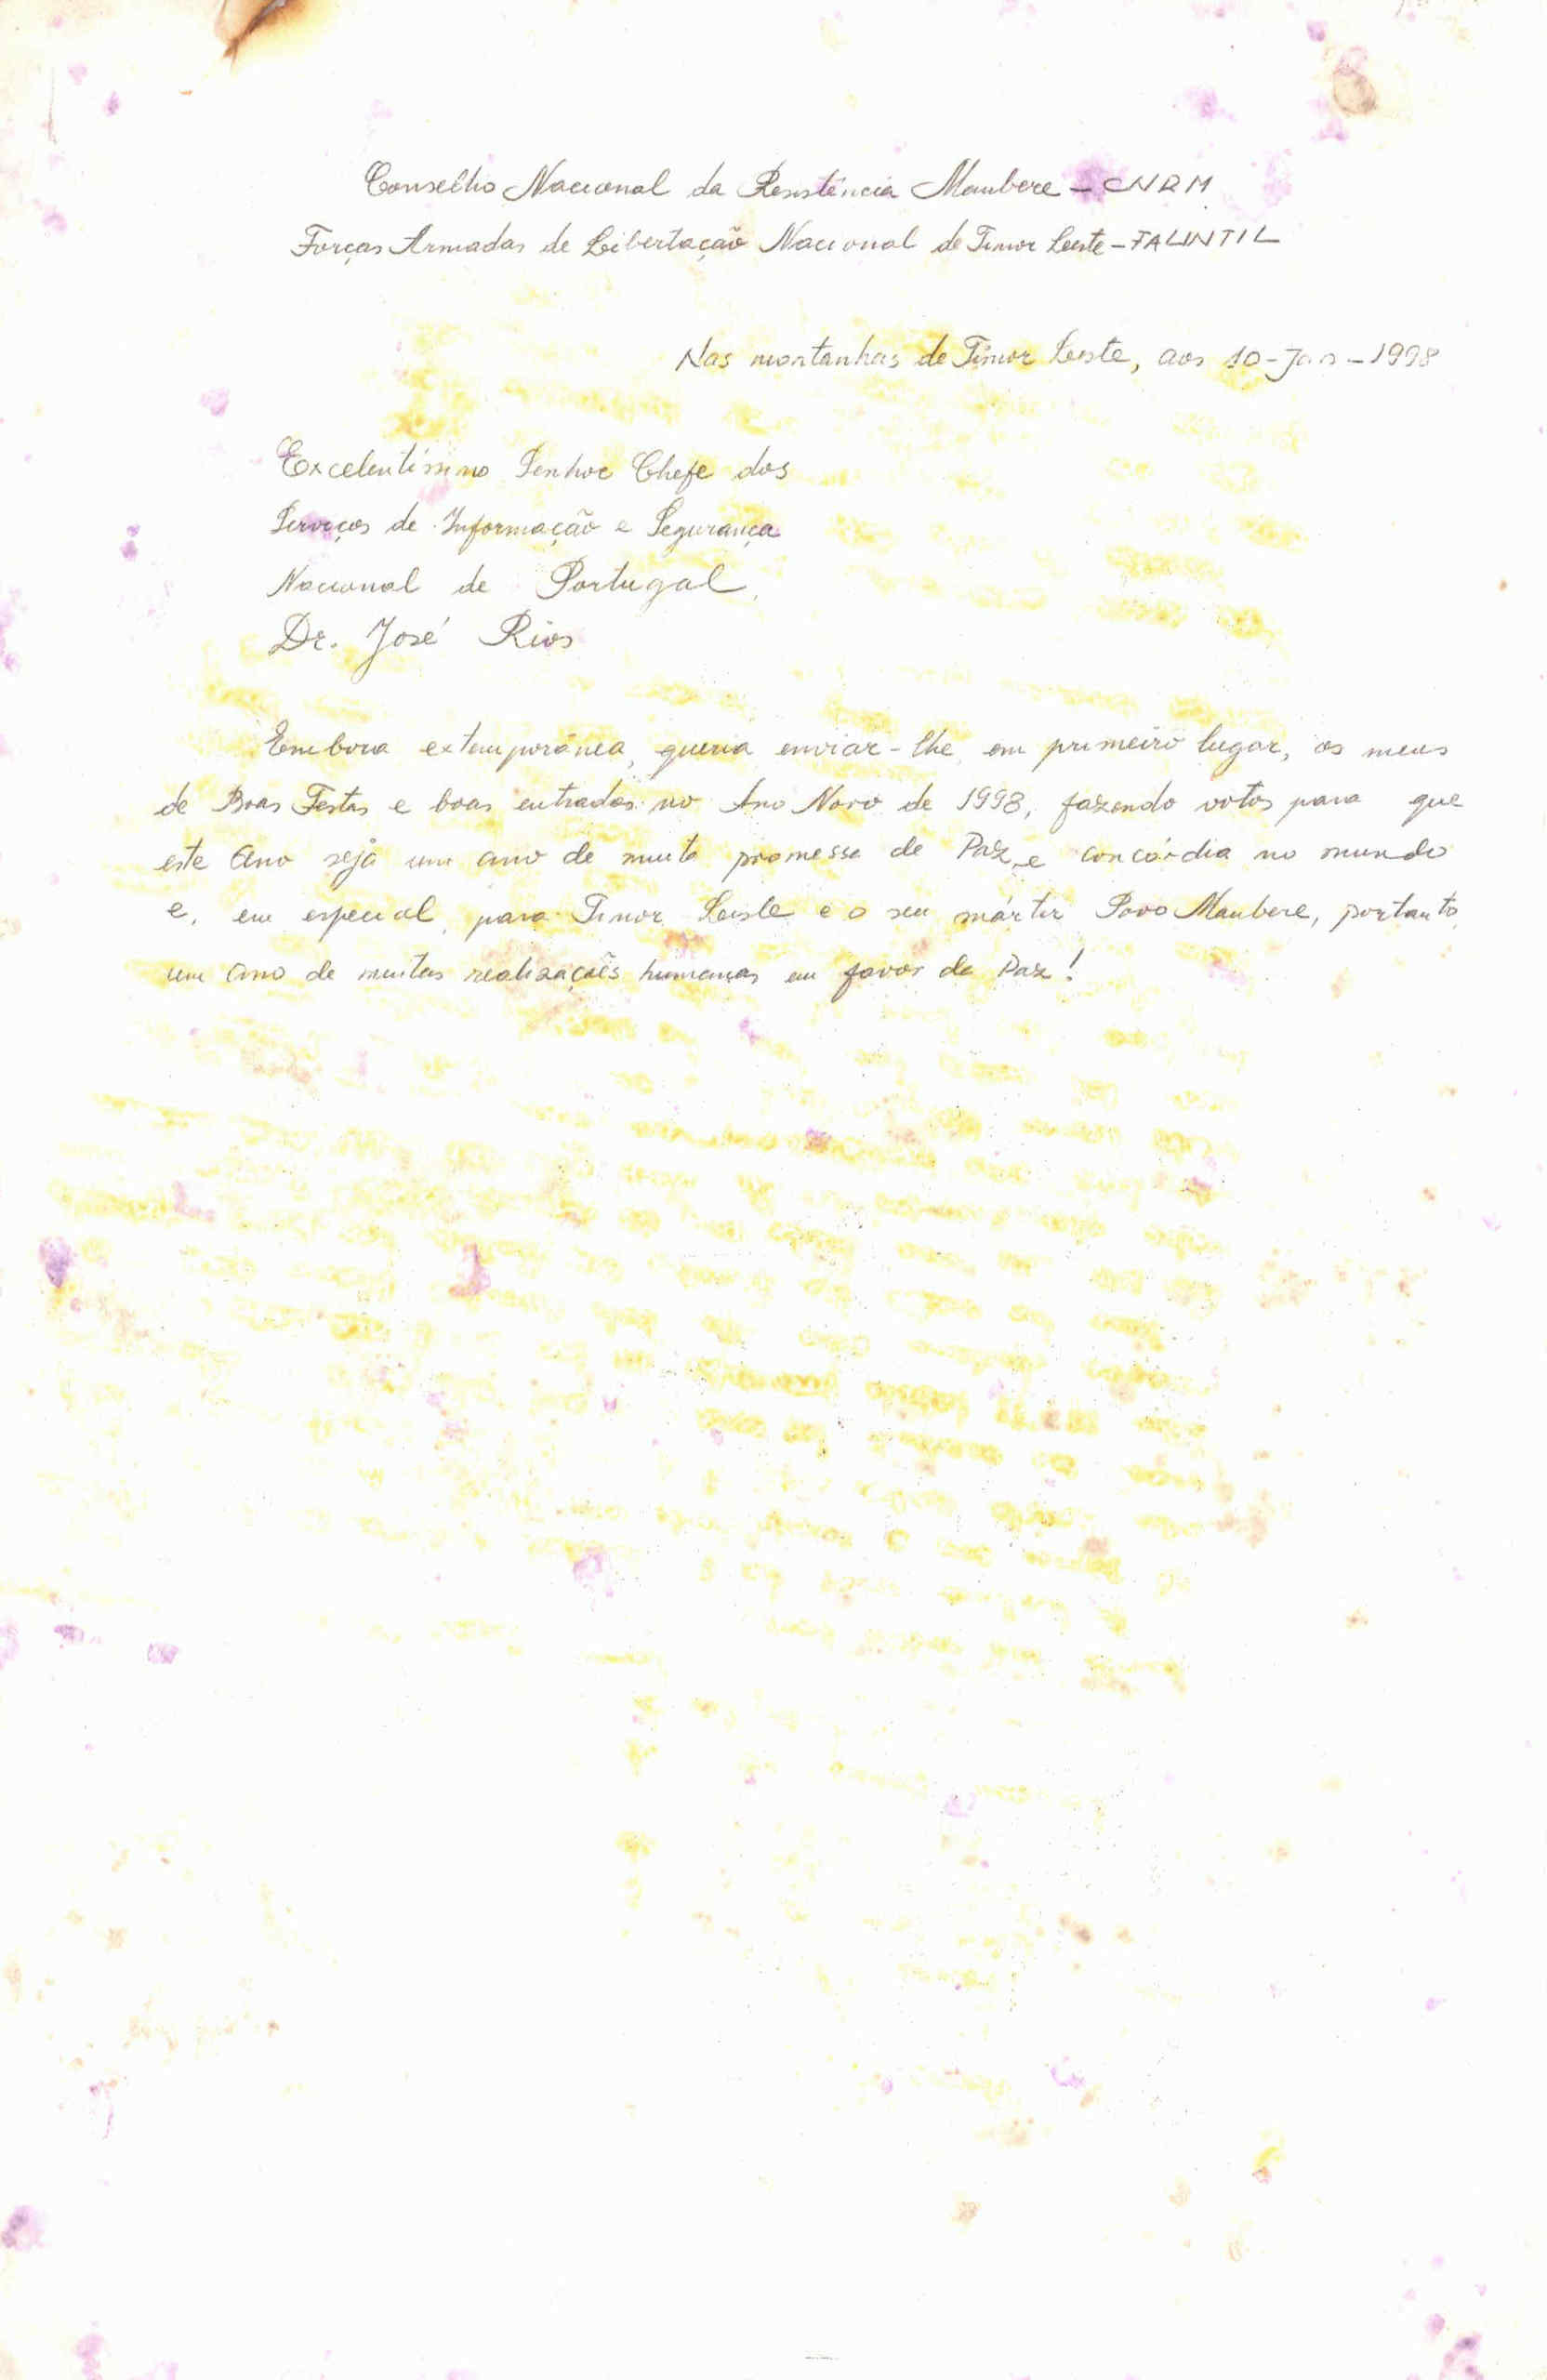 Conselho Nacional da Resistência Maubere - CNRM
Forças Armadas de Libertação Nacional de Timor Leste - FALINTIL
Nas montanhas de Timor Leste, aos 10-Jan-1998
Excelentíssimo Senhor Chefe dos
Serviços de Informação e Segurança
Nacional de Portugal,
Dr. José Rios
Embora extemporánea, queria enviar-lhe, em primeiro lugar, os meus
de Boas Festas e boas entradas no Ano Novo de 1998, fazendo votos para que
este Ano seja um ano de muita promessa de Paz e concórdia no mundo
e, em especial, para Timor Leste e o seu mártir Povo Maubere, portanto,
um Ano de muitas realizações humanas em favor da Paz!